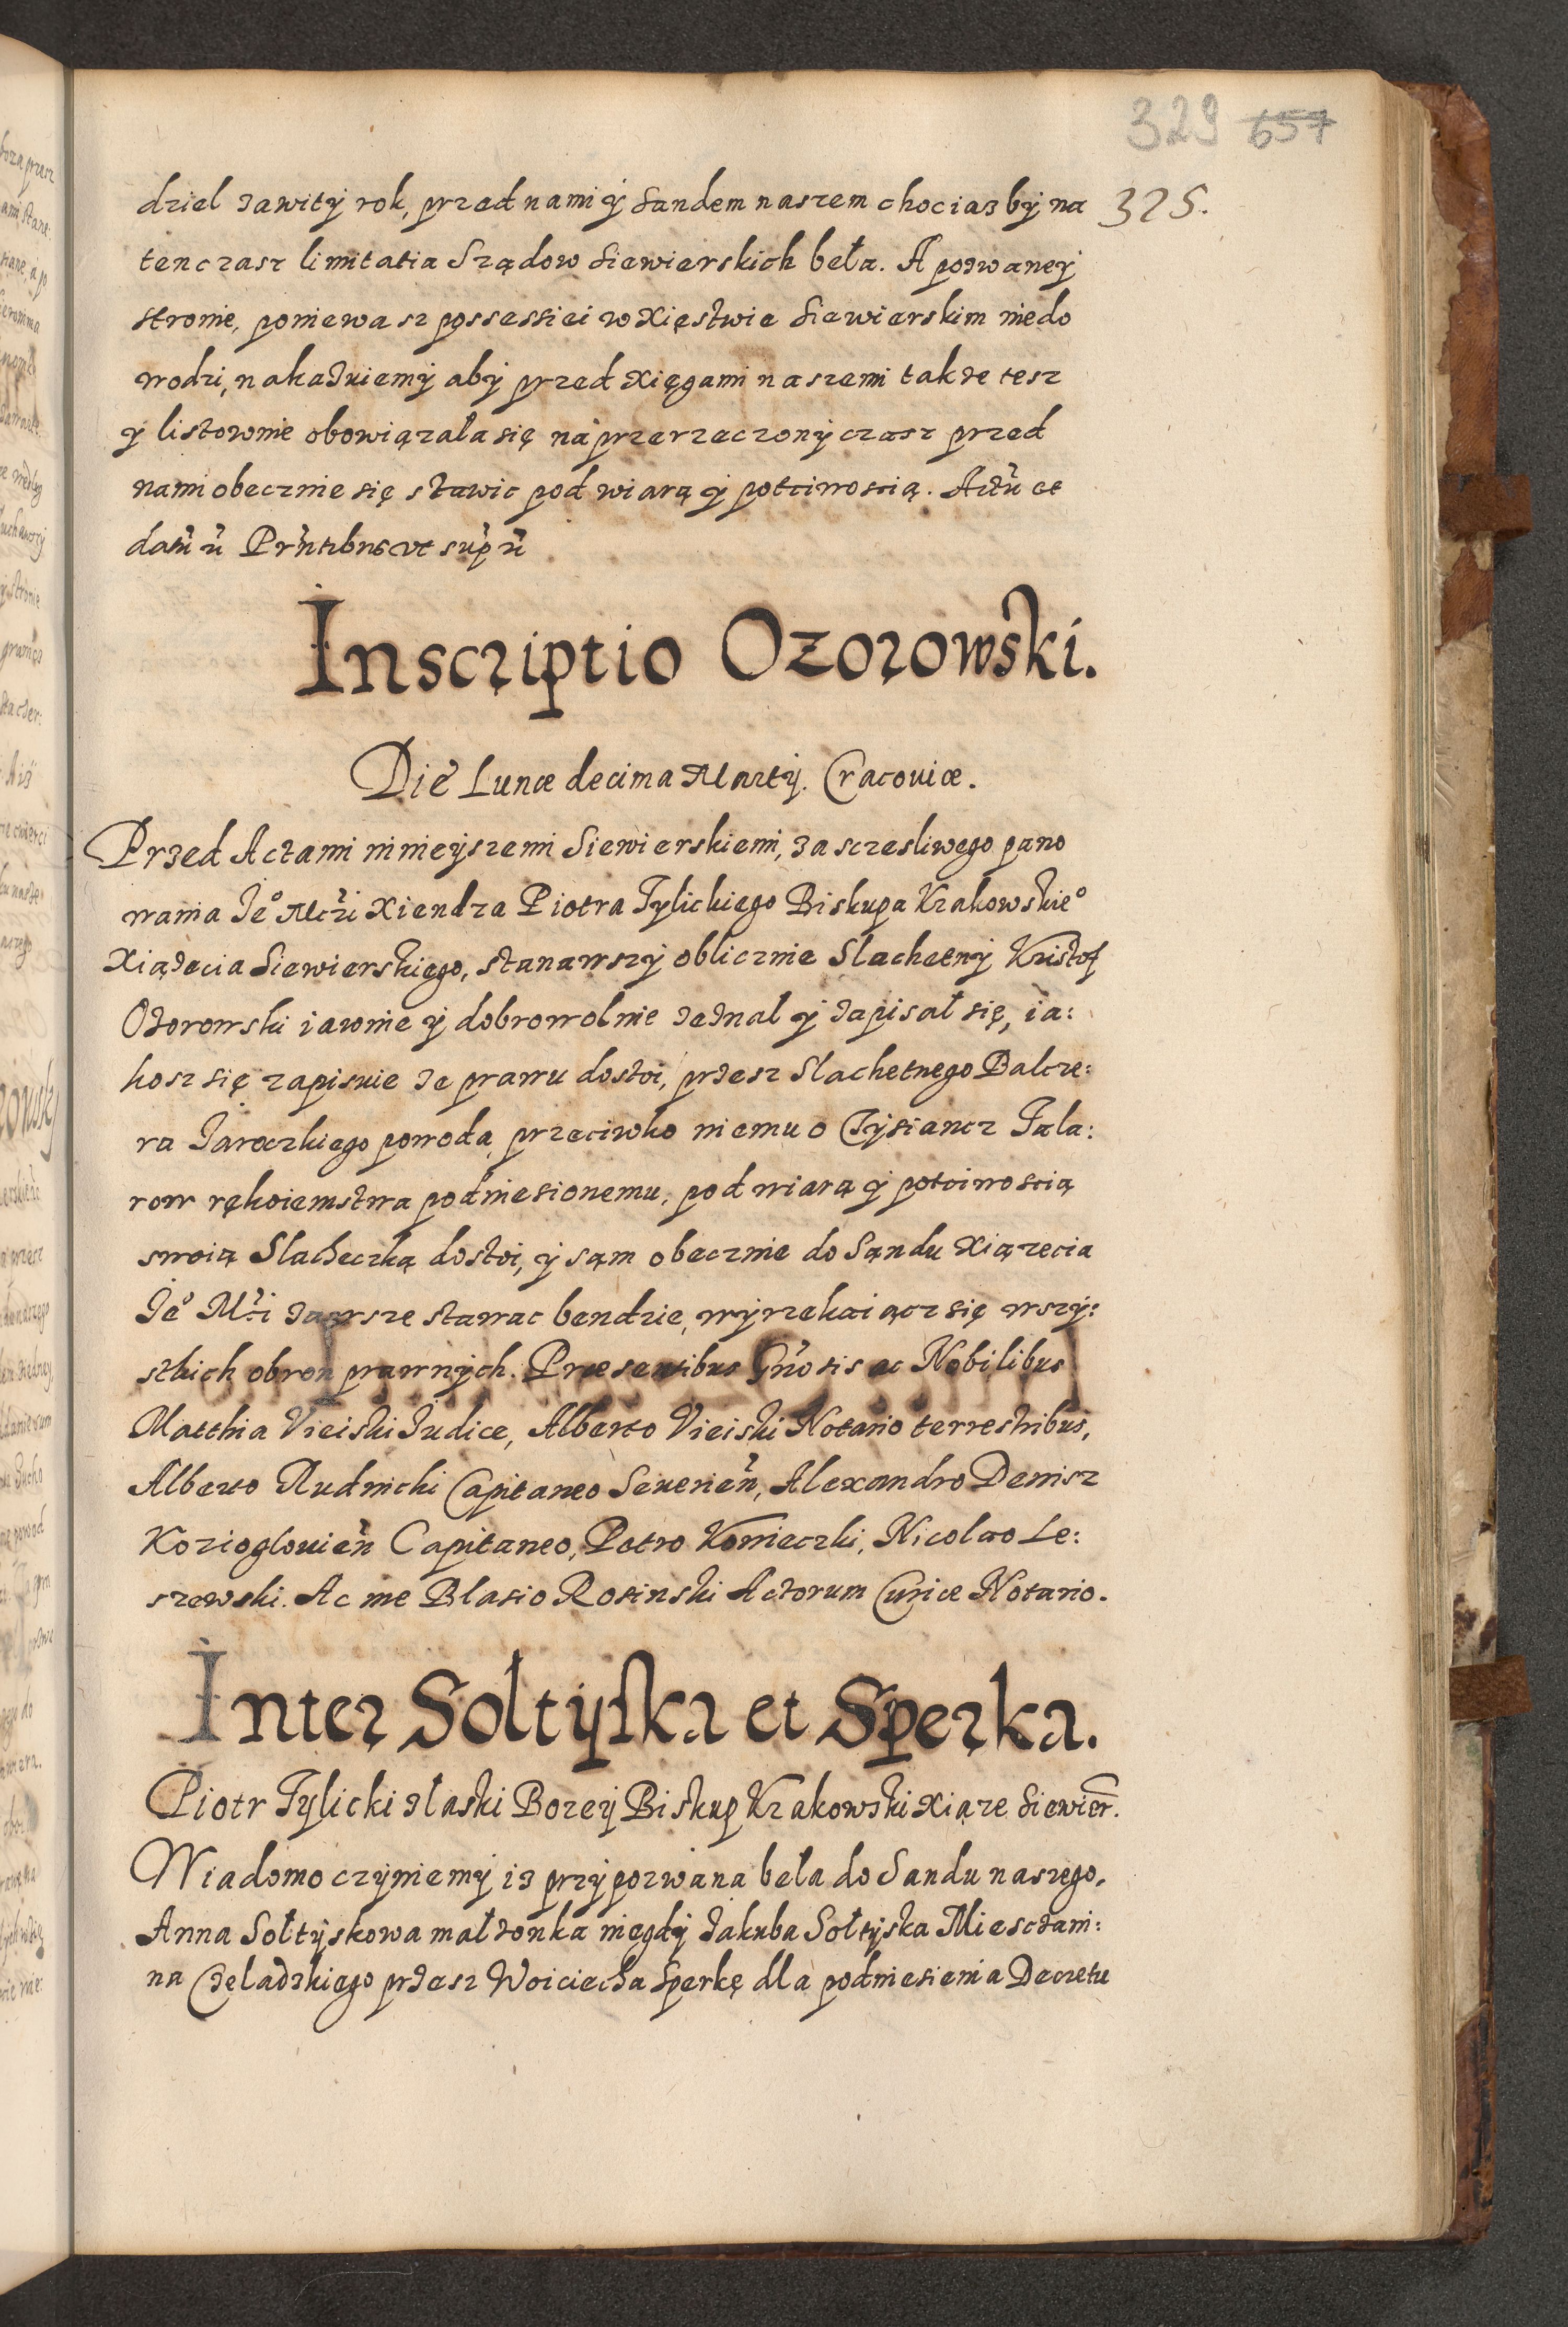 329 657
325.
dziel zawity rok, przed nami y Sandem naszem chociasby na
tenczasz limitatia Sządow Siewierskich beła. A pozwaney
stronie, poniewasz possessiei w Xięstwie Siewierskim niedo
wodzi, nakazuiemy aby przed Xięgami naszemi takze tesz
y listownie obowiązała się na przerzeczony czasz przed
nami obecznie się stawic pod wiarą y potciwoscią. Actu et
datu u Prntibus ut supu
Inscriptio Ozorowski.
Die Lunæ decima Marty. Cracouiæ.
Przed Actami ninieyszemi Siewierskiemi, za sczesliwego pano
wania Je° Mczi Xiendza Piotra Tylickiego Biskupa Krakowskie°
Xiązecia Siewierskiego, stanawszy oblicznie Slachetny Kristof
Ozorowski iawnie y dobrowolnie zeznal y zapisał się, ia:
kosz się zapisuie ze prawu dostoi, przesz Slachetnego Balcze:
ra Jaroczkiego powodą przeciwko niemu o Tysiancz Tala:
row rękoiemstwa podniesionemu, pod wiarą y potciwoscią
swoią Slacheczką dostoi, y sąm obecznie do Sąndu Xiązecia
Je° Mci zawsze stawac bendzie, wyrzekaiącz się wszy:
stkich obron prawnych. Præsentibus Gnosis ac Nobilibus
Matthia Vieiski Judice, Alberto Vieiski Notario terrestribus,
Alberto Rudnicki Capitaneo Seuerien, Alexandro Denisz
Kozioglouien Capitaneo, Petro Konieczki, Nicolao Le:
szewski. Ac me Blasio Rosinski Actorum Curiæ Notario.
Inter Sołtyska et Sperka.
Piotr Tylicki z łaski Bozey Biskup Krakowski Xiąze Siewier.
Wiadomo czyniemy is przypozwana beła do Sandu naszego,
Anna Sołtyskowa małzonka niegdy Jakuba Sołtyska Miesczani:
na Czeladzkiego przesz Woiciecha Sperkę dla podniesienia Decretu